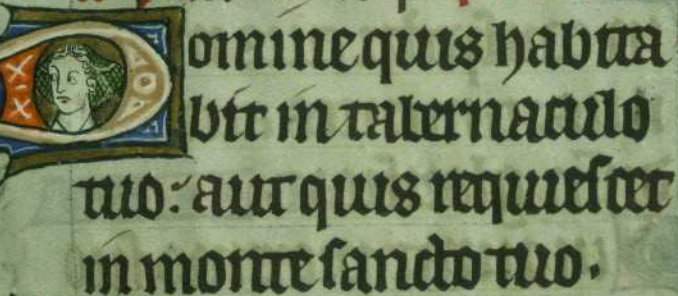 Domine quis habita
bit in tabernaculo
tuo: aut quis requiescet
in monte sancto tuo.